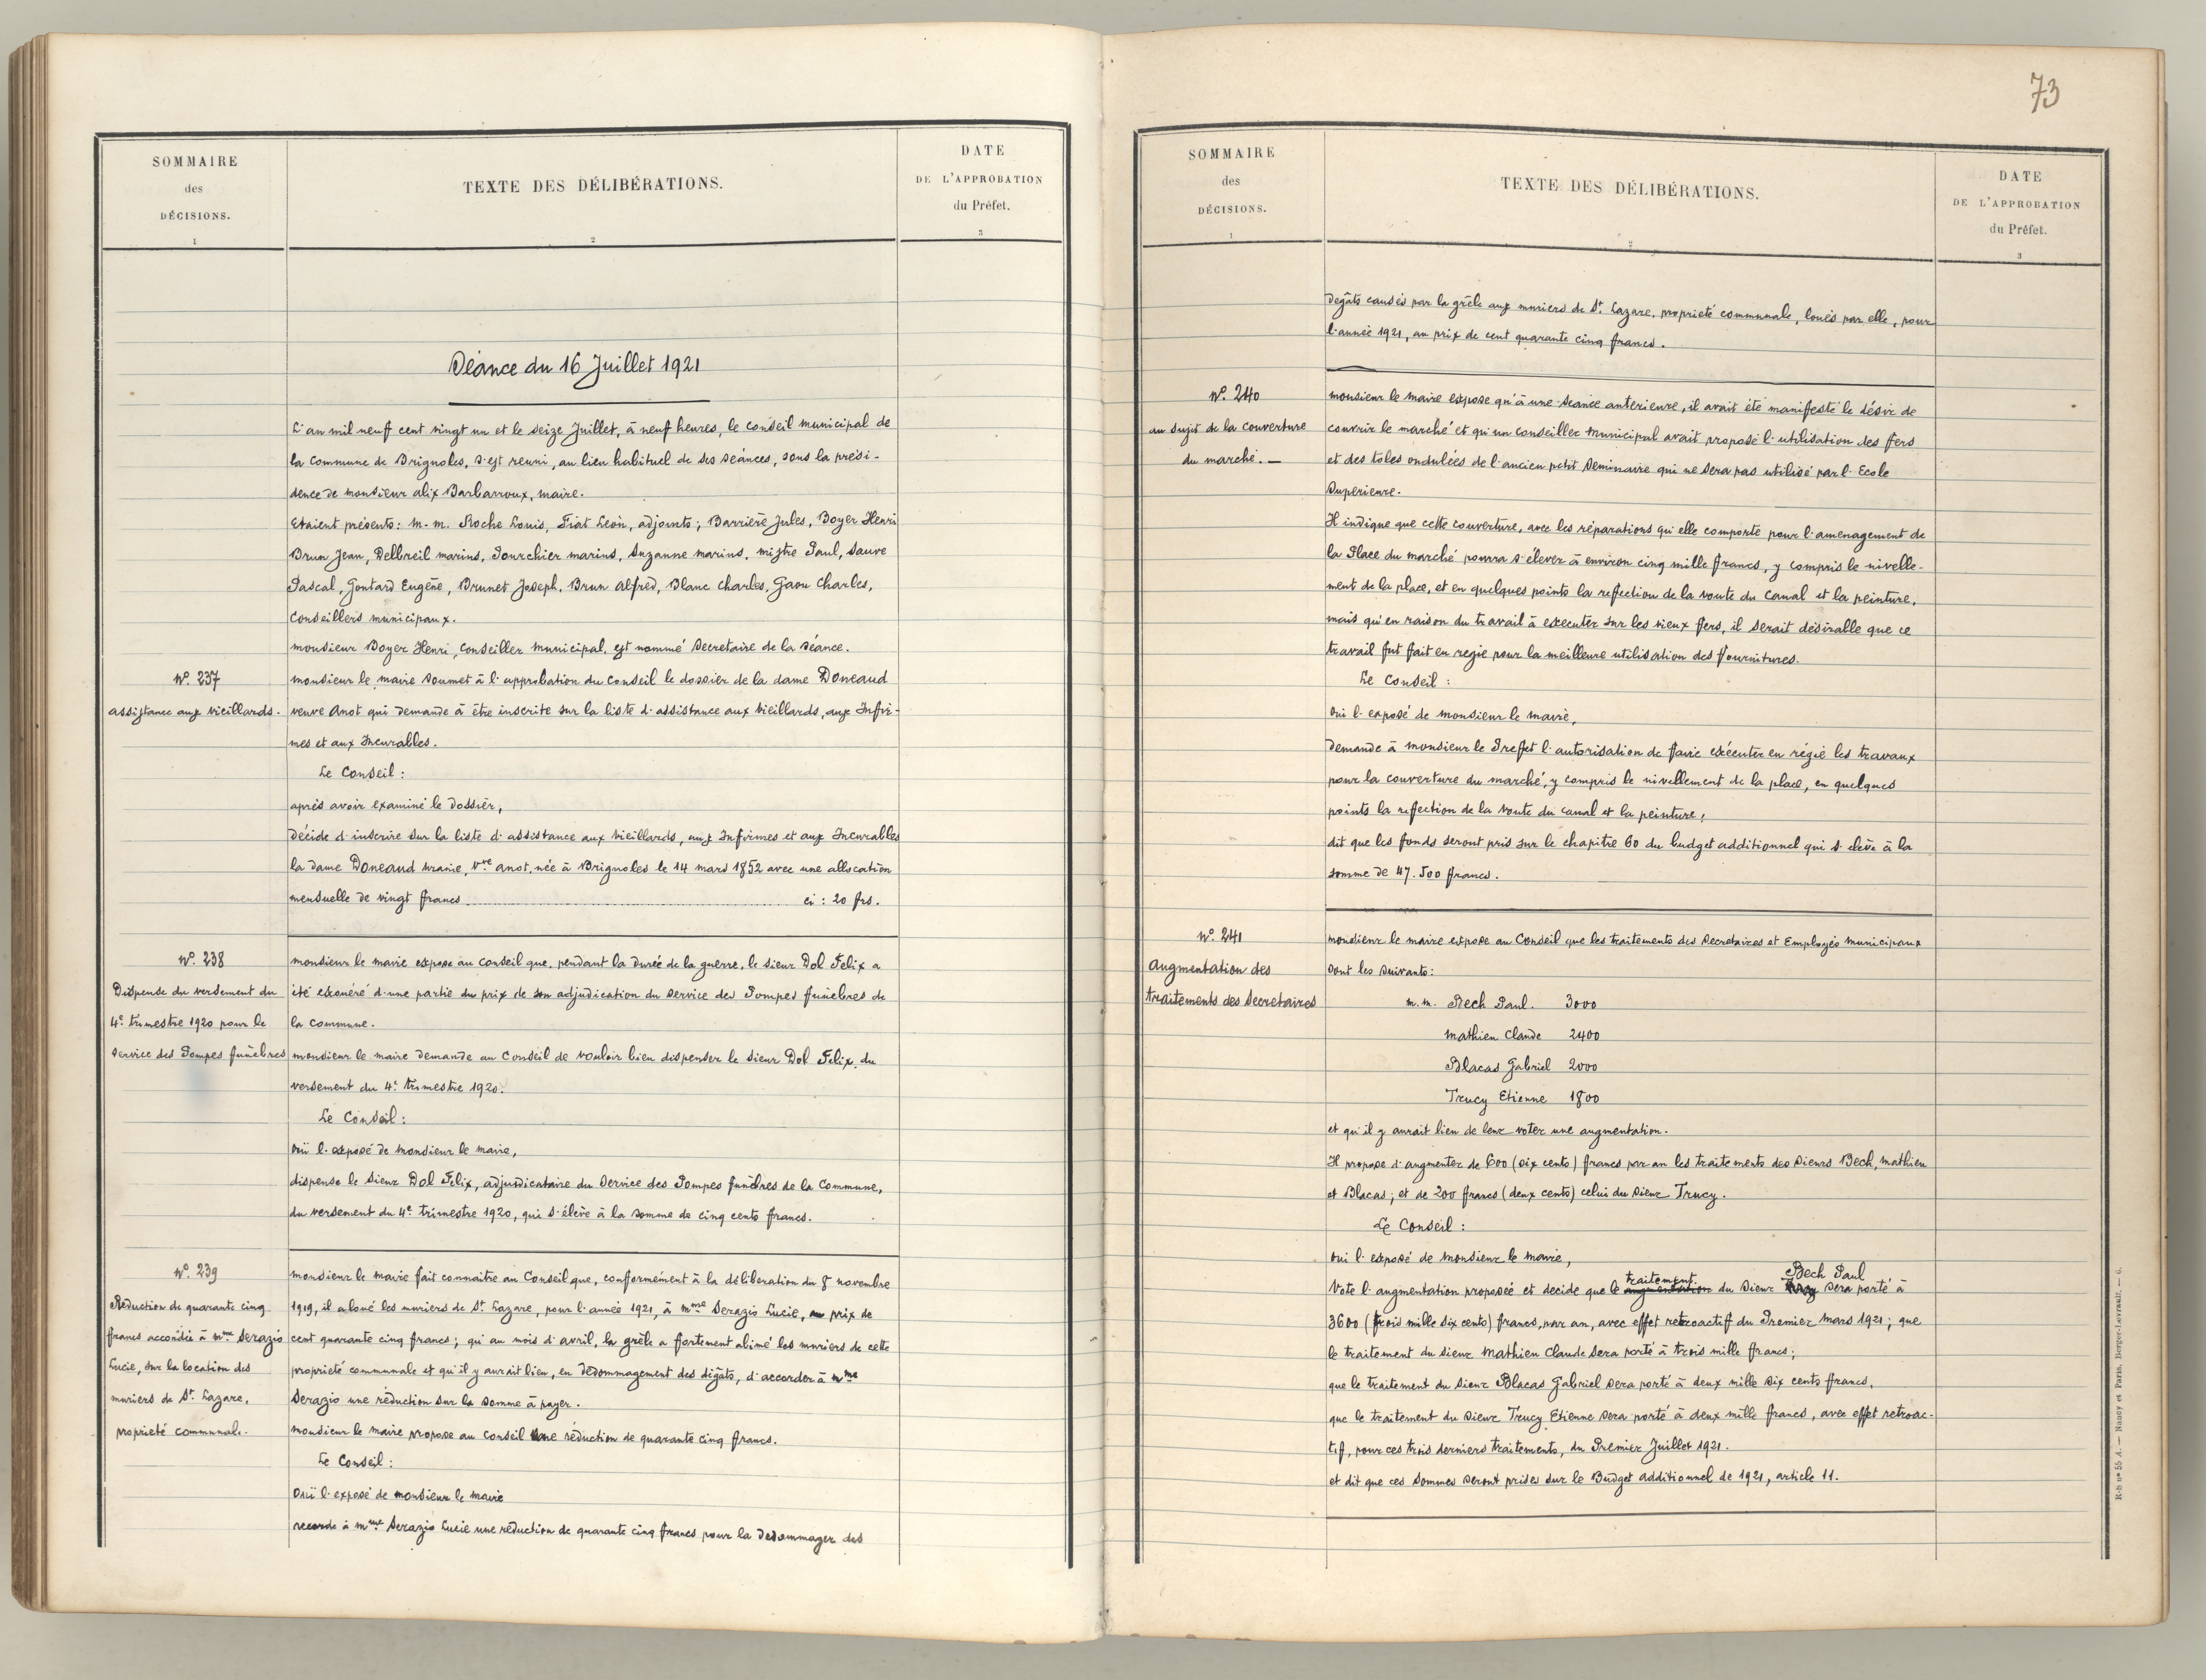 SOMMAIRE
des
DÉCISIONS.
1
TEXTE DES DÉLIBÉRATIONS.
2
DATE
DE L'APPROBATION
du Préfet.
3
Séance du 16 Juillet 1921
L'an mil neuf cent vingt un et le seize Juillet, à neuf heures, le Conseil municipal de
la Commune de Brignoles, s'est reuni, au lieu habituel de ses séances, sous la prési-
dence de monsieur Alix Barbarroux, maire.
Etaient présents: M.M. Roche Louis, Fiat Léon, adjoints; Barrière Jules, Boyer Henri
Brun Jean, Delbreil marius, Pourchier marius, Suzanne marius, mistre Paul, Sauve
Pascal, Gontard Eugène, Brunet Joseph, Brun Alfred, Blanc Charles, Gaou Charles,
Conseillers municipaux.
monsieur Boyer Henri, Conseiller municipal, est nommé Secretaire de la séance.
N° 237
assistance aux Vieillards.
monsieur le maire soumet à l'approbation du Conseil le dossier de la dame Doneaud
veuve Anot qui demande à être inscrite sur la liste d'assistance aux Vieillards, aux Infir-
mes et aux Incurables.
Le Conseil :
après avoir examiné le dossier,
décide d'inscrire sur la liste d'assistance aux Vieillards, aux Infirmes et aux Incurables
la dame Doneaud Uranie, Vve Anot, née à Brignoles le 14 mars 1852 avec une allocation
mensuelle de vingt francs ........ ci : 20 frs.
N° 238
Dispense du versement du
4e trimestre 1920 pour le
service des Pompes funèbres
monsieur le maire expose au Conseil que, pendant la durée de la guerre, le sieur Dol Felix a
été exonéré d'une partie du prix de son adjudication du service des Pompes funèbres de
la Commune.
monsieur le maire demande au Conseil de vouloir bien dispenser le sieur Dol Felix, du
versement du 4e trimestre 1920.
Le Conseil :
ouï l'exposé de monsieur le maire,
dispense le sieur Dol Felix, adjudicataire du Service des Pompes funèbres de la Commune,
du versement du 4e trimestre 1920, qui s'élève à la somme de cinq cents francs.
N° 239
Réduction de quarante cinq
francs accordée à Mme Serazio
Lucie, sur la location des
muriers de St Lazare,
propriété communale.
monsieur le maire fait connaitre au Conseil que, conformément à la délibération du 8 novembre
1919, il a loué les muriers de St Lazare, pour l'année 1921, à Mme Serazio Lucie, au prix de
cent quarante cinq francs; qui au mois d'avril, la grêle a fortement abimé les muriers de cette
propriété communale et qu'il y aurait lieu, en dédommagement des dégâts, d'accorder à Mme
Serazio une réduction sur la somme à payer.
monsieur le maire propose au Conseil une réduction de quarante cinq francs.
Le Conseil :
Ouï l'exposé de monsieur le maire
accorde à Mme Serazio Lucie une reduction de quarante cinq francs pour la dedommager des
73
SOMMAIRE
des
DÉCISIONS.
1
TEXTE DES DÉLIBÉRATIONS.
2
DATE
DE L'APPROBATION
du Préfet.
3
degâts causés par la grêle aux muriers de St Lazare, propriété communale, loués par elle, pour
l'année 1921, au prix de cent quarante cinq francs.
N° 240
au sujet de la couverture
du marché. —
monsieur le maire expose qu'à une séance anterieure, il avait été manifesté le désir de
couvrir le marché et qu'un conseiller municipal avait proposé l'utilisation des fers
et des toles ondulées de l'ancien petit Seminaire qui ne sera pas utilisé par l'Ecole
Superieure.
Il indique que cette couverture, avec les réparations qu'elle comporte pour l'amenagement de
la Place du marché pourra s'élever à environ cinq mille francs, y compris le nivelle-
ment de la place, et en quelques points la reffection de la voute du Canal et la peinture,
mais qu'en raison du travail à executer sur les vieux fers, il serait désirable que ce
travail fut fait en regie pour la meilleure utilisation des fournitures.
Le Conseil :
ouï l'exposé de monsieur le maire,
demande à monsieur le Preffet l'autorisation de faire exécuter en régie les travaux
pour la couverture du marché, y compris le nivellement de la place, en quelques
points la reffection de la voute du canal et la peinture,
dit que les fonds seront pris sur le chapitre 60 du budget additionnel qui s'élève à la
somme de 47.500 francs.
N° 241
Augmentation des
traitements des Secretaires
monsieur le maire expose au Conseil que les traitements des Secretaires et Employés municipaux
sont les suivants:
M.M. Bech Paul. 3000
Mathieu Claude 2400
Blacas Gabriel 2000
Trucy Etienne 1800
et qu'il y aurait lieu de leur voter une augmentation.
Il propose d'augmenter de 600 (six cents) francs par an les traitements des sieurs Bech, Mathieu
et Blacas; et de 200 francs (deux cents) celui du sieur Trucy.
Le Conseil :
ouï l'exposé de monsieur le maire,
Vote l'augmentation proposée et decide que le augmentation traitement du sieur Bech Paul sera porté à
3600 (trois mille six cents) francs, par an, avec effet retroactif du Premier Mars 1921; que
le traitement du sieur Mathieu Claude sera porté à trois mille francs;
que le traitement du sieur Blacas Gabriel sera porté à deux mille six cents francs,
que le traitement du sieur Trucy Etienne sera porté à deux mille francs, avec effet retroac-
tif, pour ces trois derniers traitements, du Premier Juillet 1921.
et dit que ces sommes seront prises sur le Budget additionnel de 1921, article 11.
R-S n° 55 A. — Nancy et Paris, Berger-Levrault. — 6.